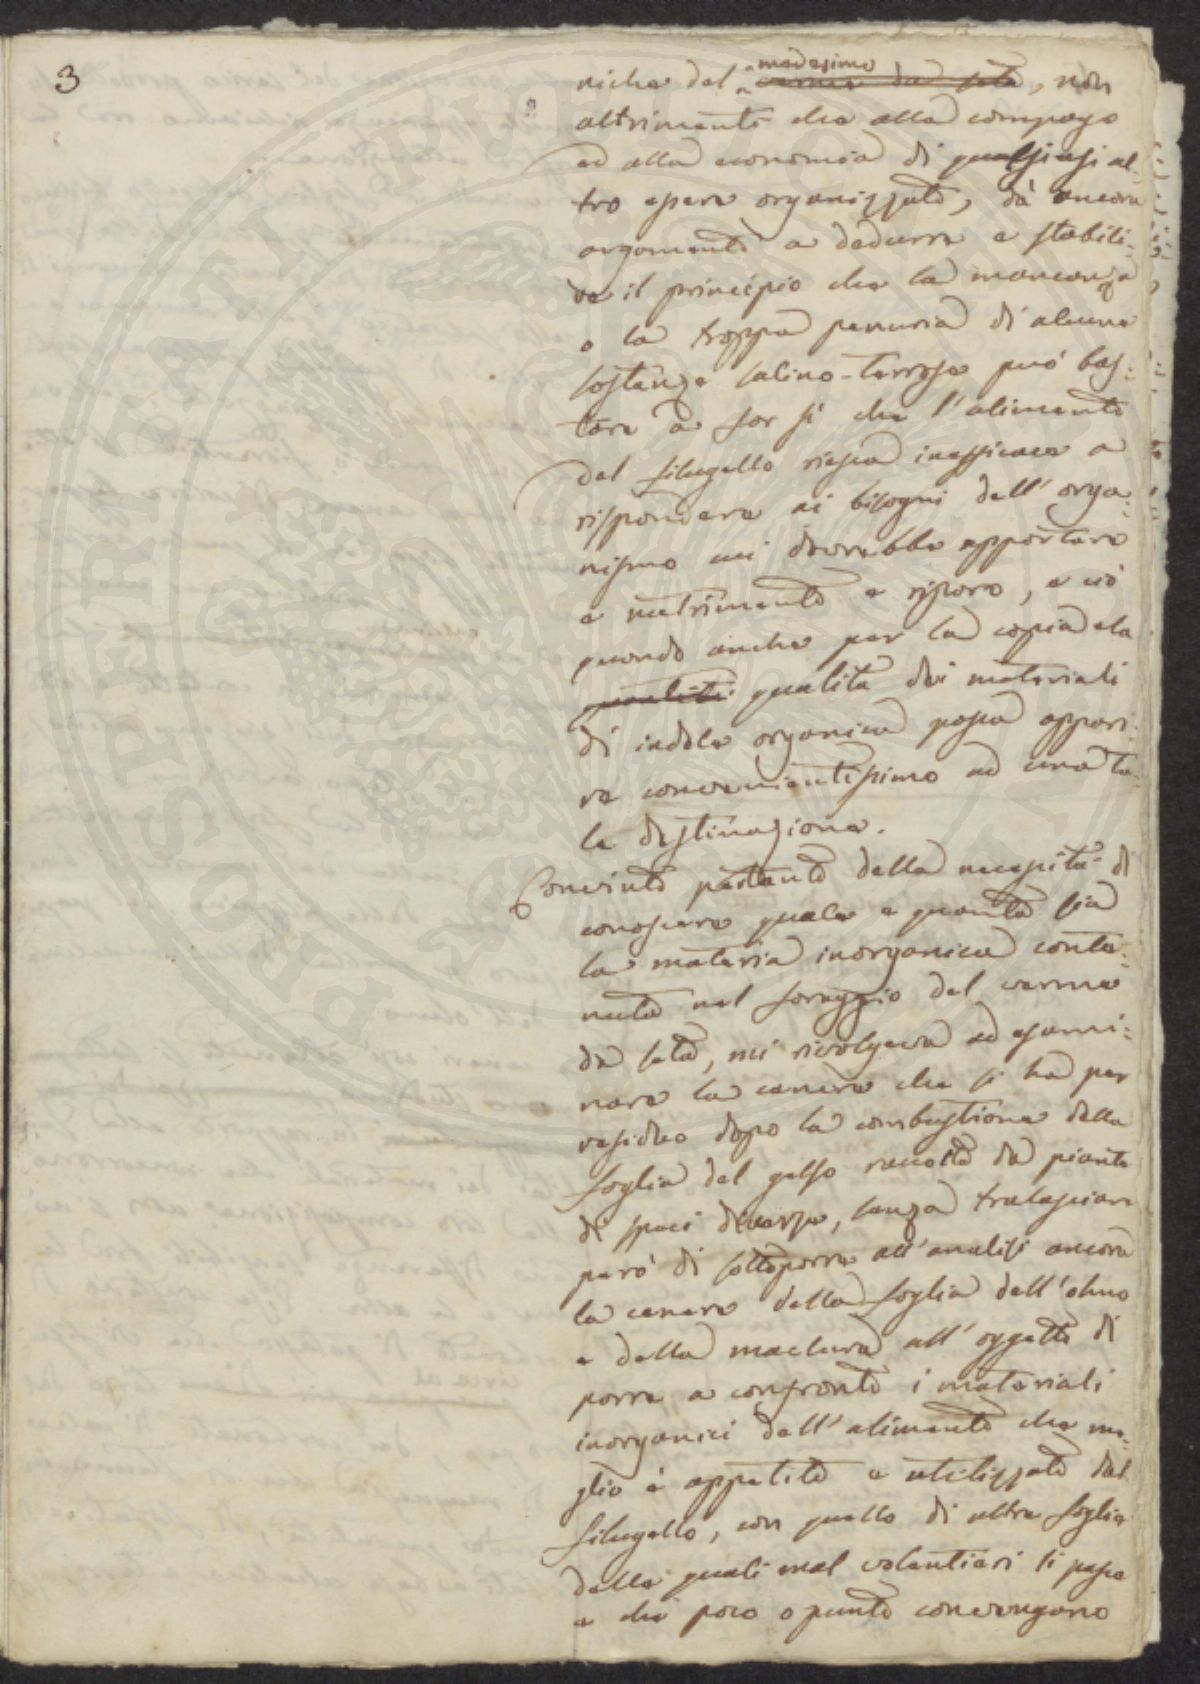 3
niche del medesimo verme da seta, non
altrimenti che alla compage
ed alla economia di qualsiasi al-
tro essere organizzato, dà ancora
argomento a dedurre e stabili-
re il principio che la mancanza
o la troppa penuria di alcune
sostanze salino-terrose può bas-
tare a far sì che l'alimento
del filugello riesca inefficace a
rispondere ai bisogni dell'orga-
nismo cui dovrebbe apportare
e nutrimento e riparo, e ciò
quando anche per la copia e la
qualità qualità dei materiali
di indole organica possa appari-
re convenientissimo ad una ta-
le destinazione.
Convinto pertanto della necessità di
conoscere quale e quanta sia
la materia inorganica conte-
nuta nel foraggio del verme
da seta, mi rivolgeva ad esami-
nare la cenere che si ha per
residuo dopo la combustione della
foglia del gelso raccolta da piante
di speci diverse, senza tralasciare
però di sottoporre all'analisi ancora
la cenere della foglia dell'olmo
e della maclura all'oggetto di
porre a confronto i materiali
inorganici dell'alimento che me-
glio è appetito e utilizzato dal
filugello, con quello di altre foglie
delle quali mal volentieri si pasce
e che poco o punto convengono
PROSPERITATI PUBLICAE